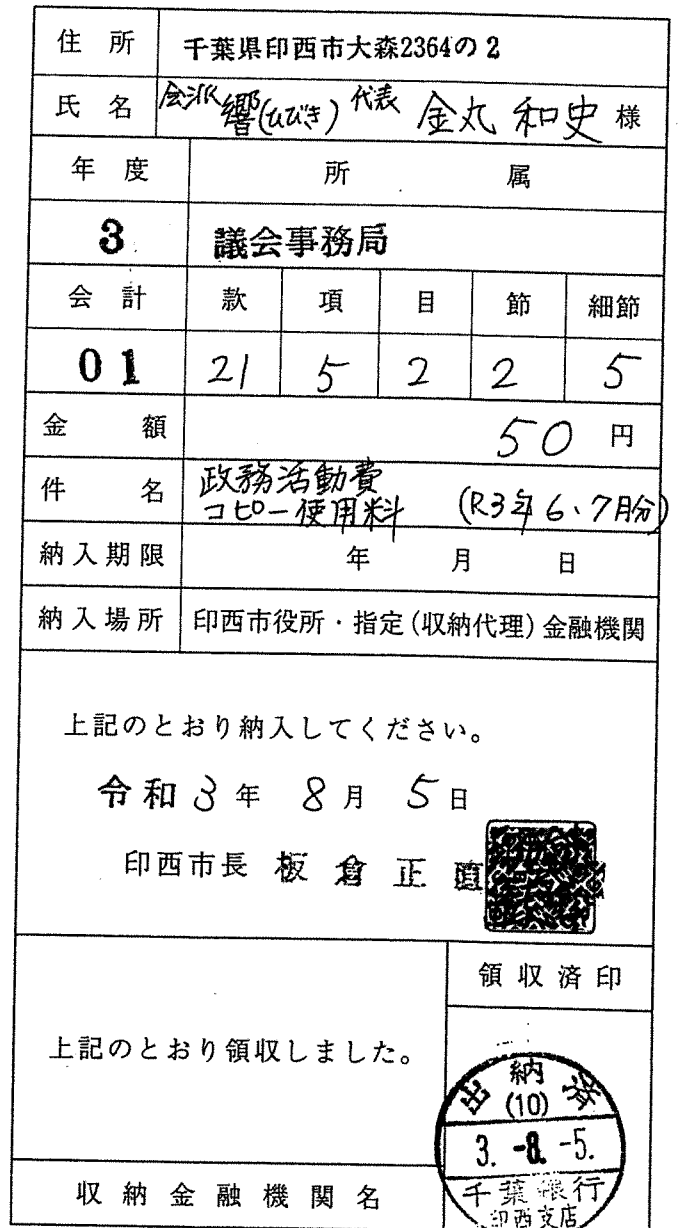 住所 千葉県印西市大森2364の2
氏名 会派 響(ひびき) 代表 金丸 和史 様
年度 所属
3 議会事務局
会計 款 項 目 節 細節
01 21 5 2 2 5
金額 50 円
件名 政務活動費
コピー使用料 (R3年6、7月分)
納入期限 年 月 日
納入場所 印西市役所・指定(収納代理)金融機関
上記のとおり納入してください。
令和3年 8月 5日
印西市長 板倉正直
領収済印
上記のとおり領収しました。
出納済
(10)
3.-8.-5.
千葉銀行
印西支店
収納金融機関名